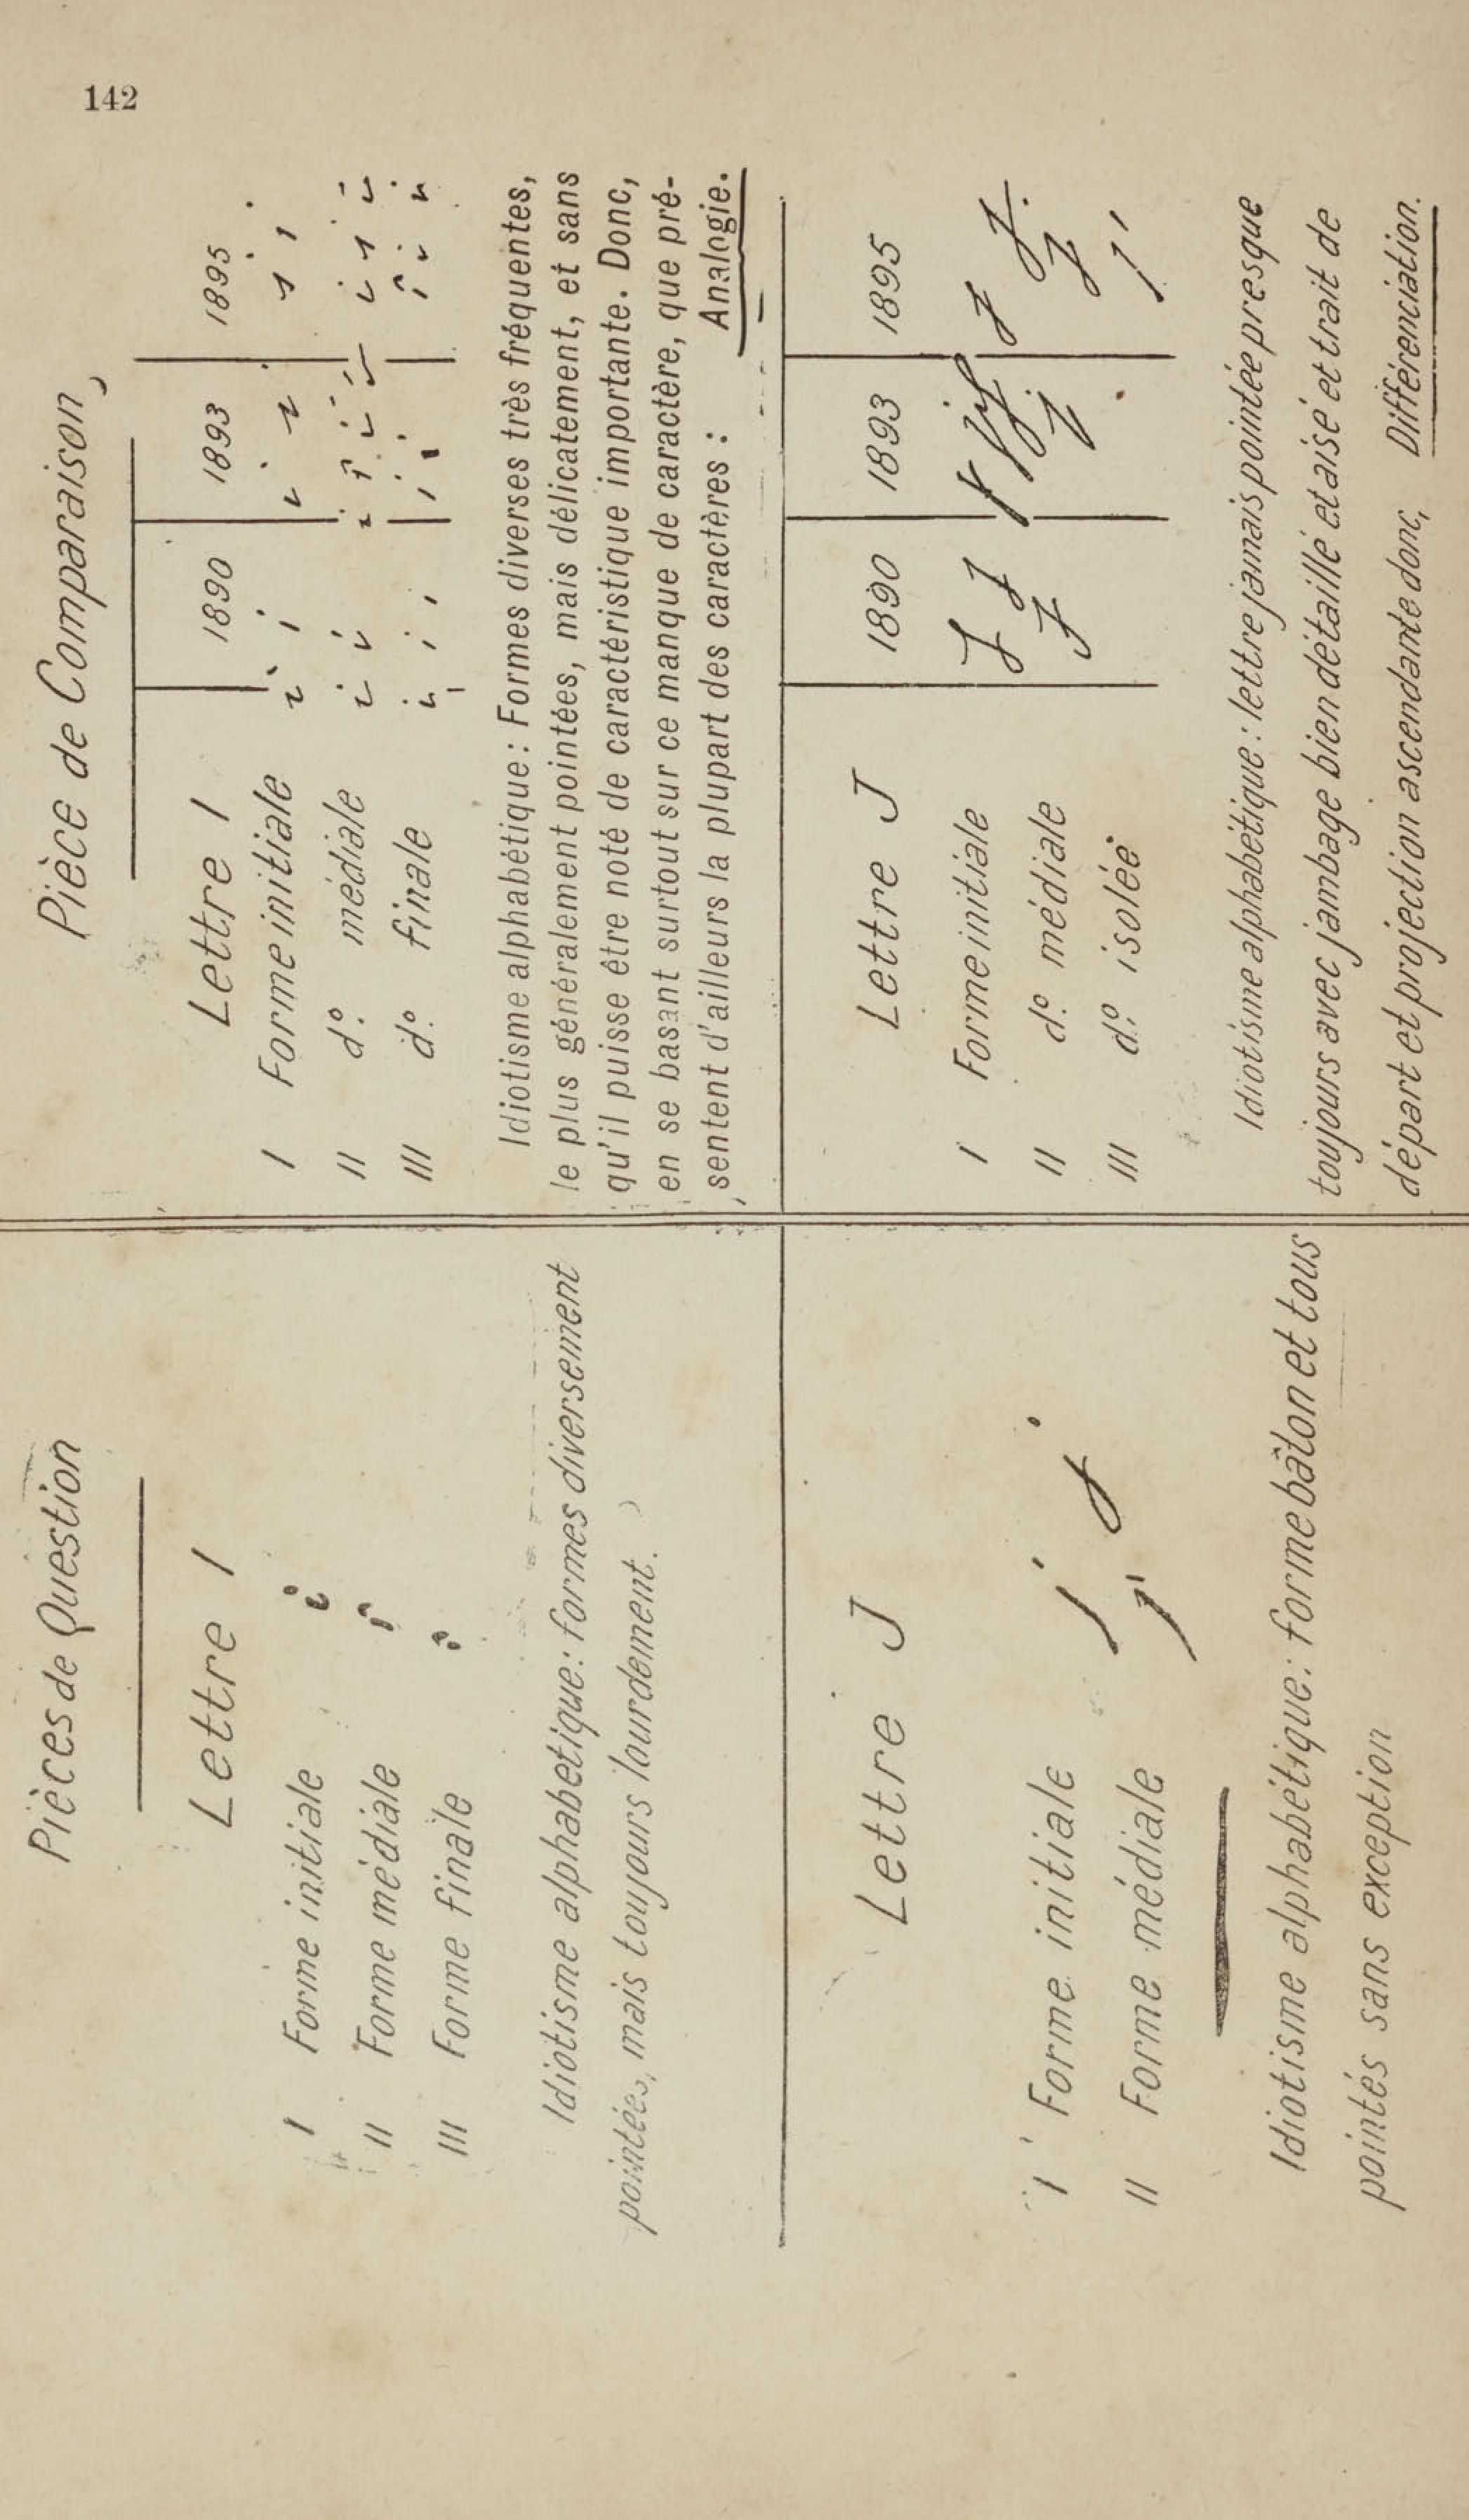 142
Pièces de Question
Lettre I
I Forme initiale
II Forme médiale
III Forme finale
Idiotisme alphabetique: formes diversement
pointées, mais toujours lourdement.
Lettre J
I Forme initiale
II Forme médiale
Idiotisme alphabétique: forme bâton et tous
pointés sans exception
Pièce de Comparaison,
Lettre I 1890 1893 1895
I Forme initiale
II do. médiale
III do. finale
Idiotisme alphabétique: Formes diverses très fréquentes,
le plus généralement pointées, mais délicatement, et sans
qu'il puisse être noté de caractéristique importante. Donc,
en se basant surtout sur ce manque de caractère, que pré-
sentent d'ailleurs la plupart des caractères : Analogie.
Lettre J 1890 1893 1895
I Forme initiale
II do. médiale
III do. isolée
Idiotisme alphabétique: lettre jamais pointée presque
toujours avec jambage bien détaillé et aisé et trait de
départ et projection ascendante donc, Différenciation.